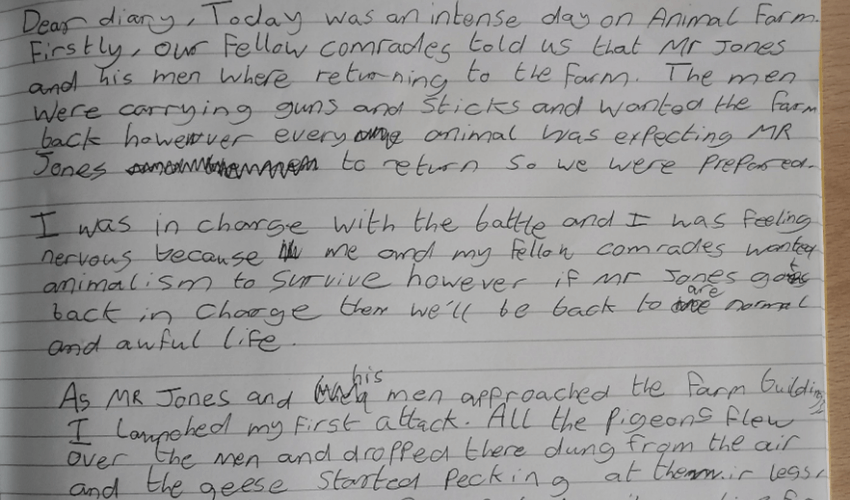 Dear diary, Today was an intense day on Animal Farm.
Firstly, our Fellow comrades told us that Mr Jones
and his men where returning to the farm. The men
were carrying guns and sticks and wanted the farm
back however every animal was expecting MR
Jones to return so we were prepared.
I was in charge with the battle and I was feeling
nervous because me and my fellow comrades wanted
animalism to survive however if Mr Jones gets
back in charge then we'll be back to are normal
and awful life.
As MR Jones and his men approached the farm building
I launched my first attack. All the pigeons flew
over the men and dropped there dung from the air
and the geese started pecking at their legs.